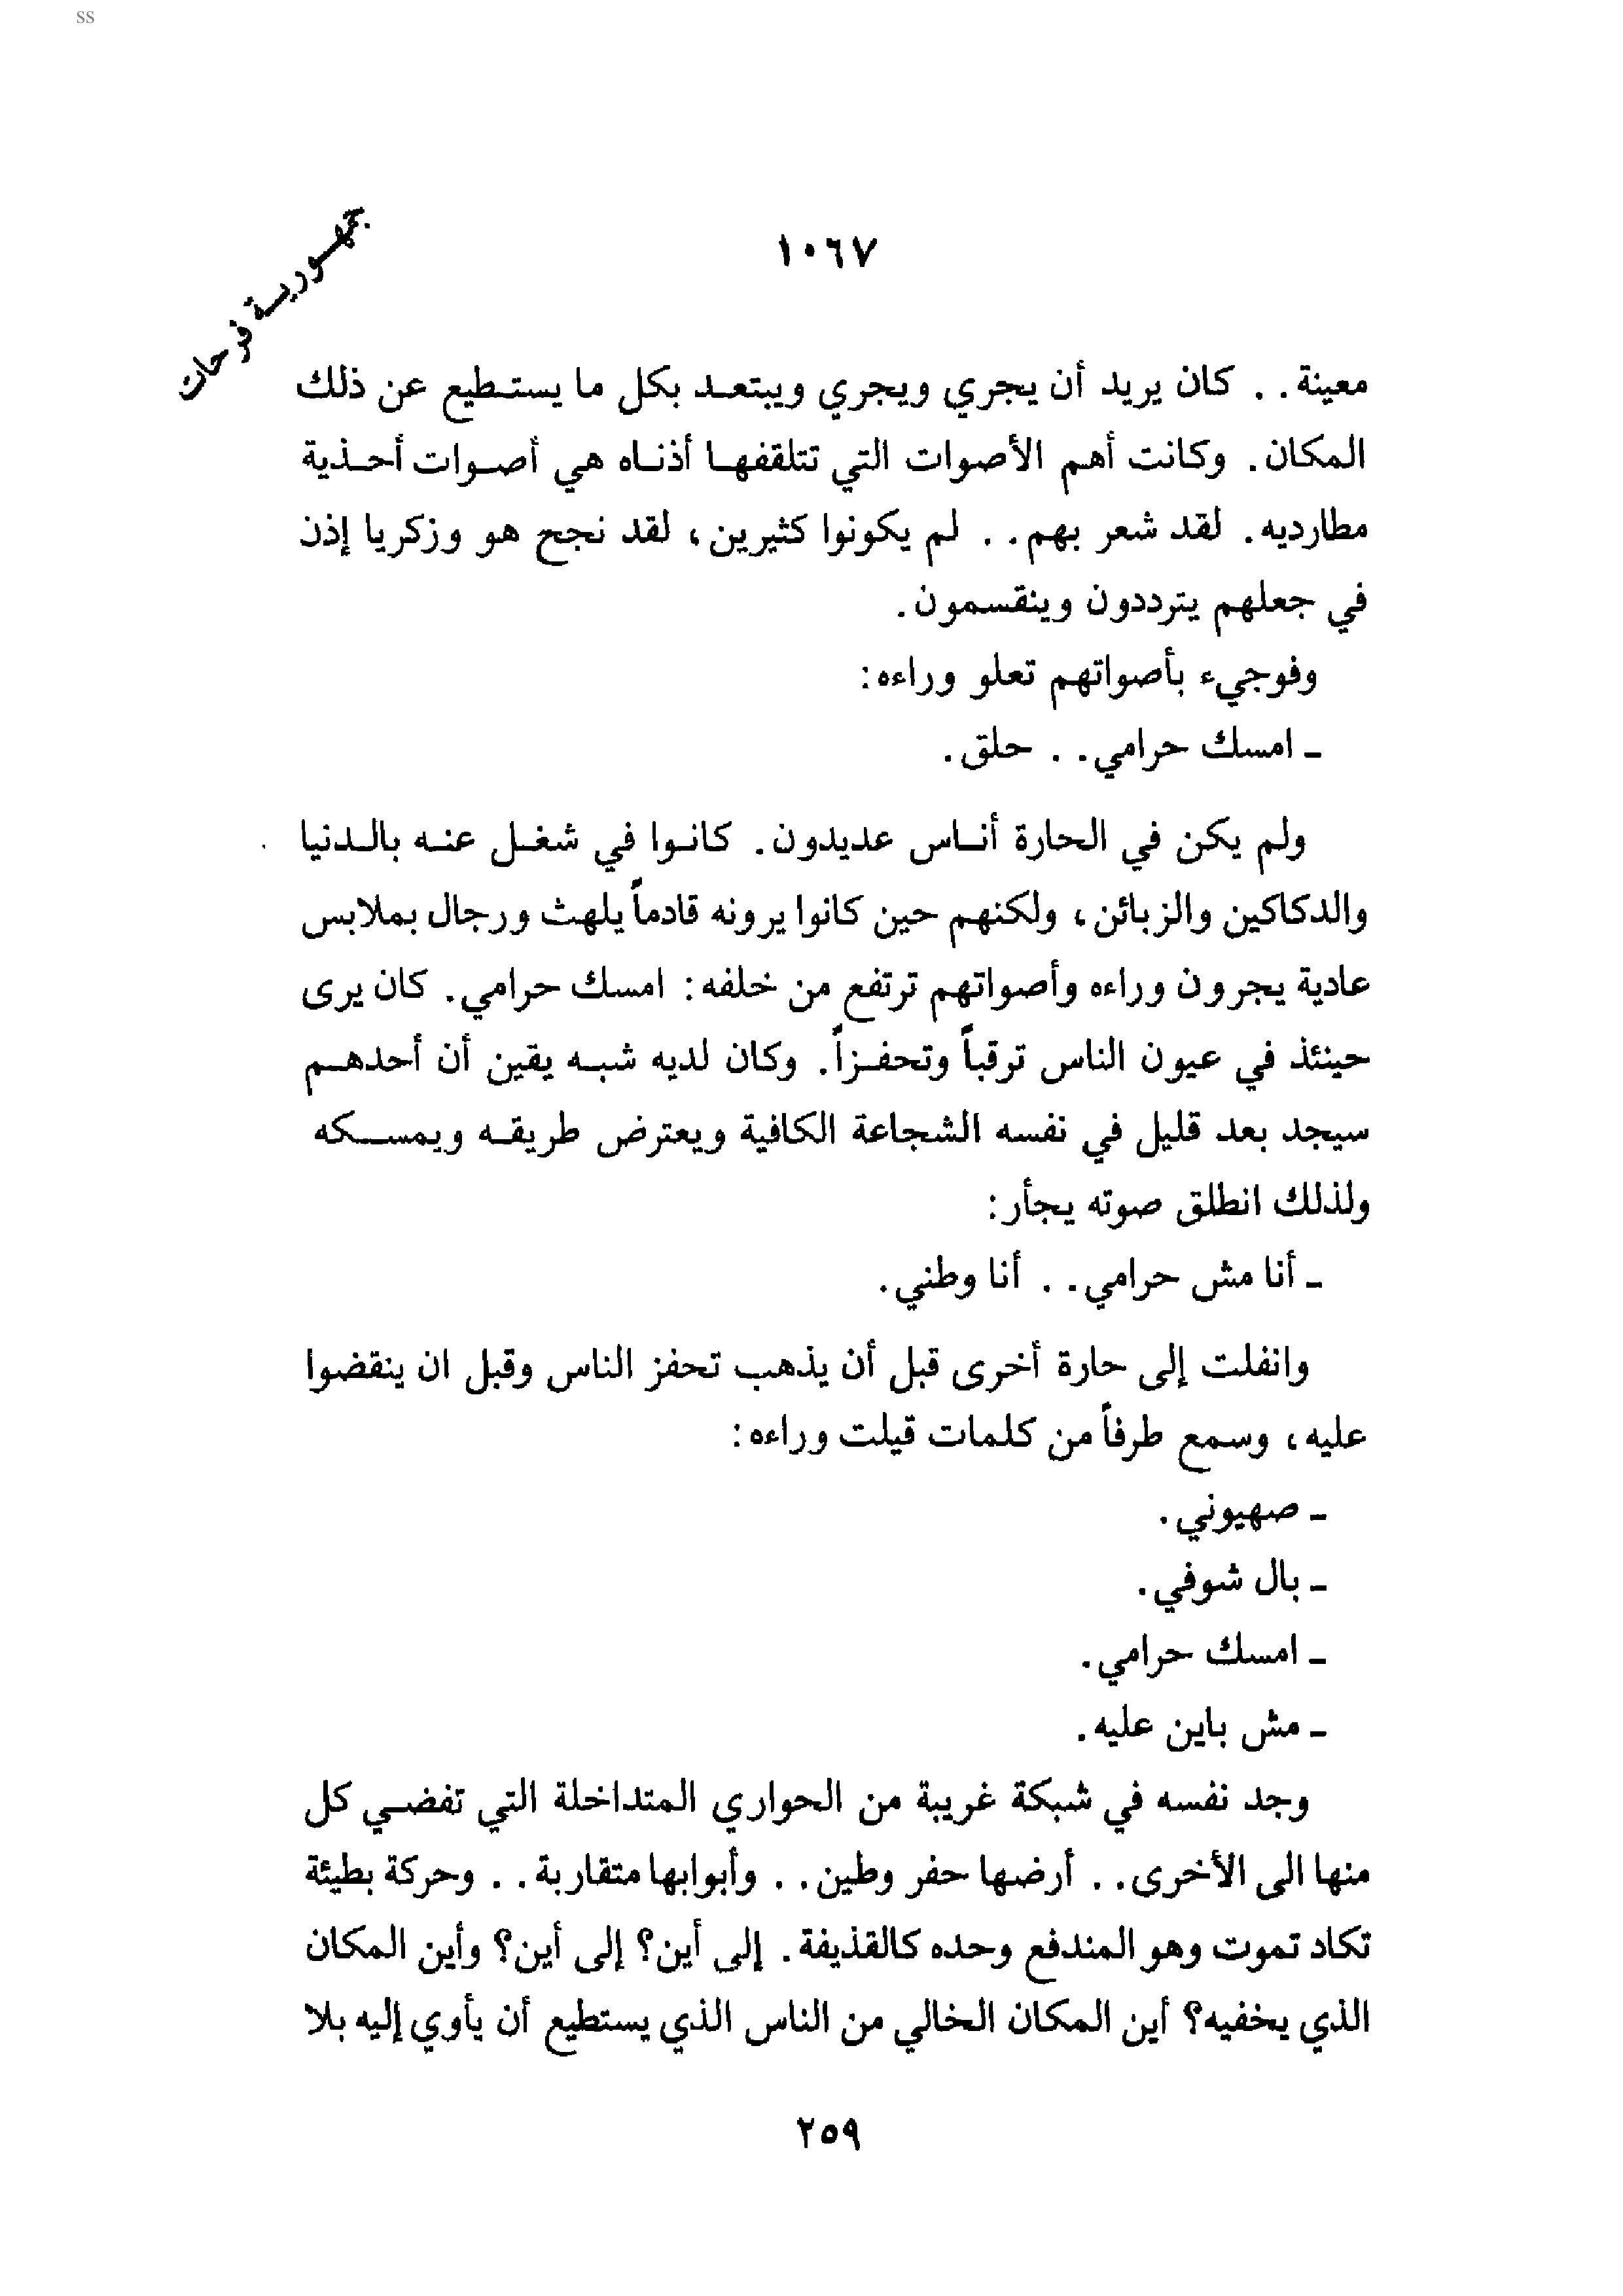 ss
جمهورية فرحات
١٠٦٧
معينة . . كان يريد أن يجري ويجري ويبتعد بكل ما يستطيع عن ذلك
المكان. وكانت أهم الأصوات التي تتلقفها أذناه هي أصوات أحذية
مطارديه. لقد شعر بهم . . لم يكونوا كثيرين، لقد نجح هو وزكريا إذن
في جعلهم يترددون وينقسمون.
وفوجيء بأصواتهم تعلو وراءه:
ـ امسك حرامي . . حلق.
ولم يكن في الحارة أناس عديدون. كانوا في شغل عنه بالدنيا
والدكاكين والزبائن، ولكنهم حين كانوا يرونه قادماً يلهث ورجال بملابس
عادية يجرون وراءه وأصواتهم ترتفع من خلفه: امسك حرامي. كان يرى
حينئذ في عيون الناس ترقباً وتحفزاً. وكان لديه شبه يقين أن أحدهم
سيجد بعد قليل في نفسه الشجاعة الكافية ويعترض طريقه ويمسكه
ولذلك انطلق صوته يجأر:
ـ أنا مش حرامي . . أنا وطني.
وانفلت إلى حارة أخرى قبل أن يذهب تحفز الناس وقبل ان ينقضوا
عليه، وسمع طرفاً من كلمات قيلت وراءه:
ـ صهيوني.
ـ بال شوفي.
ـ امسك حرامي.
ـ مش باين عليه.
وجد نفسه في شبكة غريبة من الحواري المتداخلة التي تفضي كل
منها الى الأخرى . . أرضها حفر وطين . . وأبوابها متقاربة . . وحركة بطيئة
تكاد تموت وهو المندفع وحده كالقذيفة. إلى أين؟ إلى أين؟ وأين المكان
الذي يخفيه؟ أين المكان الخالي من الناس الذي يستطيع أن يأوي إليه بلا
٢٥٩